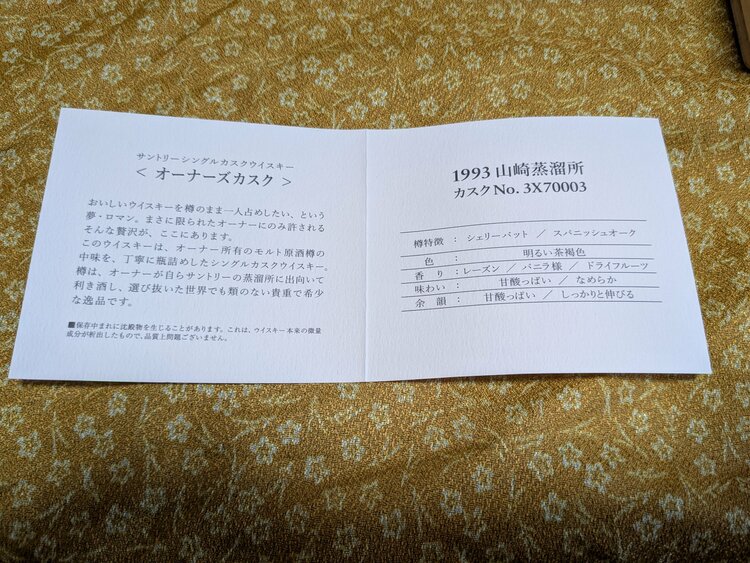 サントリーシングルカスクウイスキー
< オーナーズカスク >
おいしいウイスキーを樽のまま一人占めしたい、という
夢・ロマン。まさに限られたオーナーにのみ許される
そんな贅沢が、ここにあります。
このウイスキーは、オーナー所有のモルト原酒樽の
中味を、丁寧に瓶詰めしたシングルカスクウイスキー。
樽は、オーナーが自らサントリーの蒸溜所に出向いて
利き酒し、選び抜いた世界でも類のない貴重で希少
な逸品です。
■保存中まれに沈殿物を生じることがあります。これは、ウイスキー本来の微量
成分が析出したもので、品質上問題ございません。
1993 山崎蒸溜所
カスク No. 3X70003
樽特徴 : シェリーバット / スパニッシュオーク
色 : 明るい茶褐色
香り : レーズン / バニラ様 / ドライフルーツ
味わい : 甘酸っぱい / なめらか
余韻 : 甘酸っぱい / しっかりと伸びる